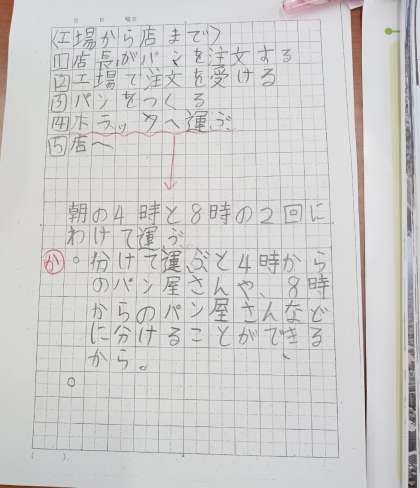 〈工場から店まで〉
①店長がパンを注文する
②工場で注文を受ける
③パンをつくる
④トラックへ運ぶ
⑤店へ
朝の4時と8時の2回に
わけて運ぶ
か。分けて運ぶと4時から
のパン屋さんや、8時
からのパン屋さんなど
に分けることができる
から。